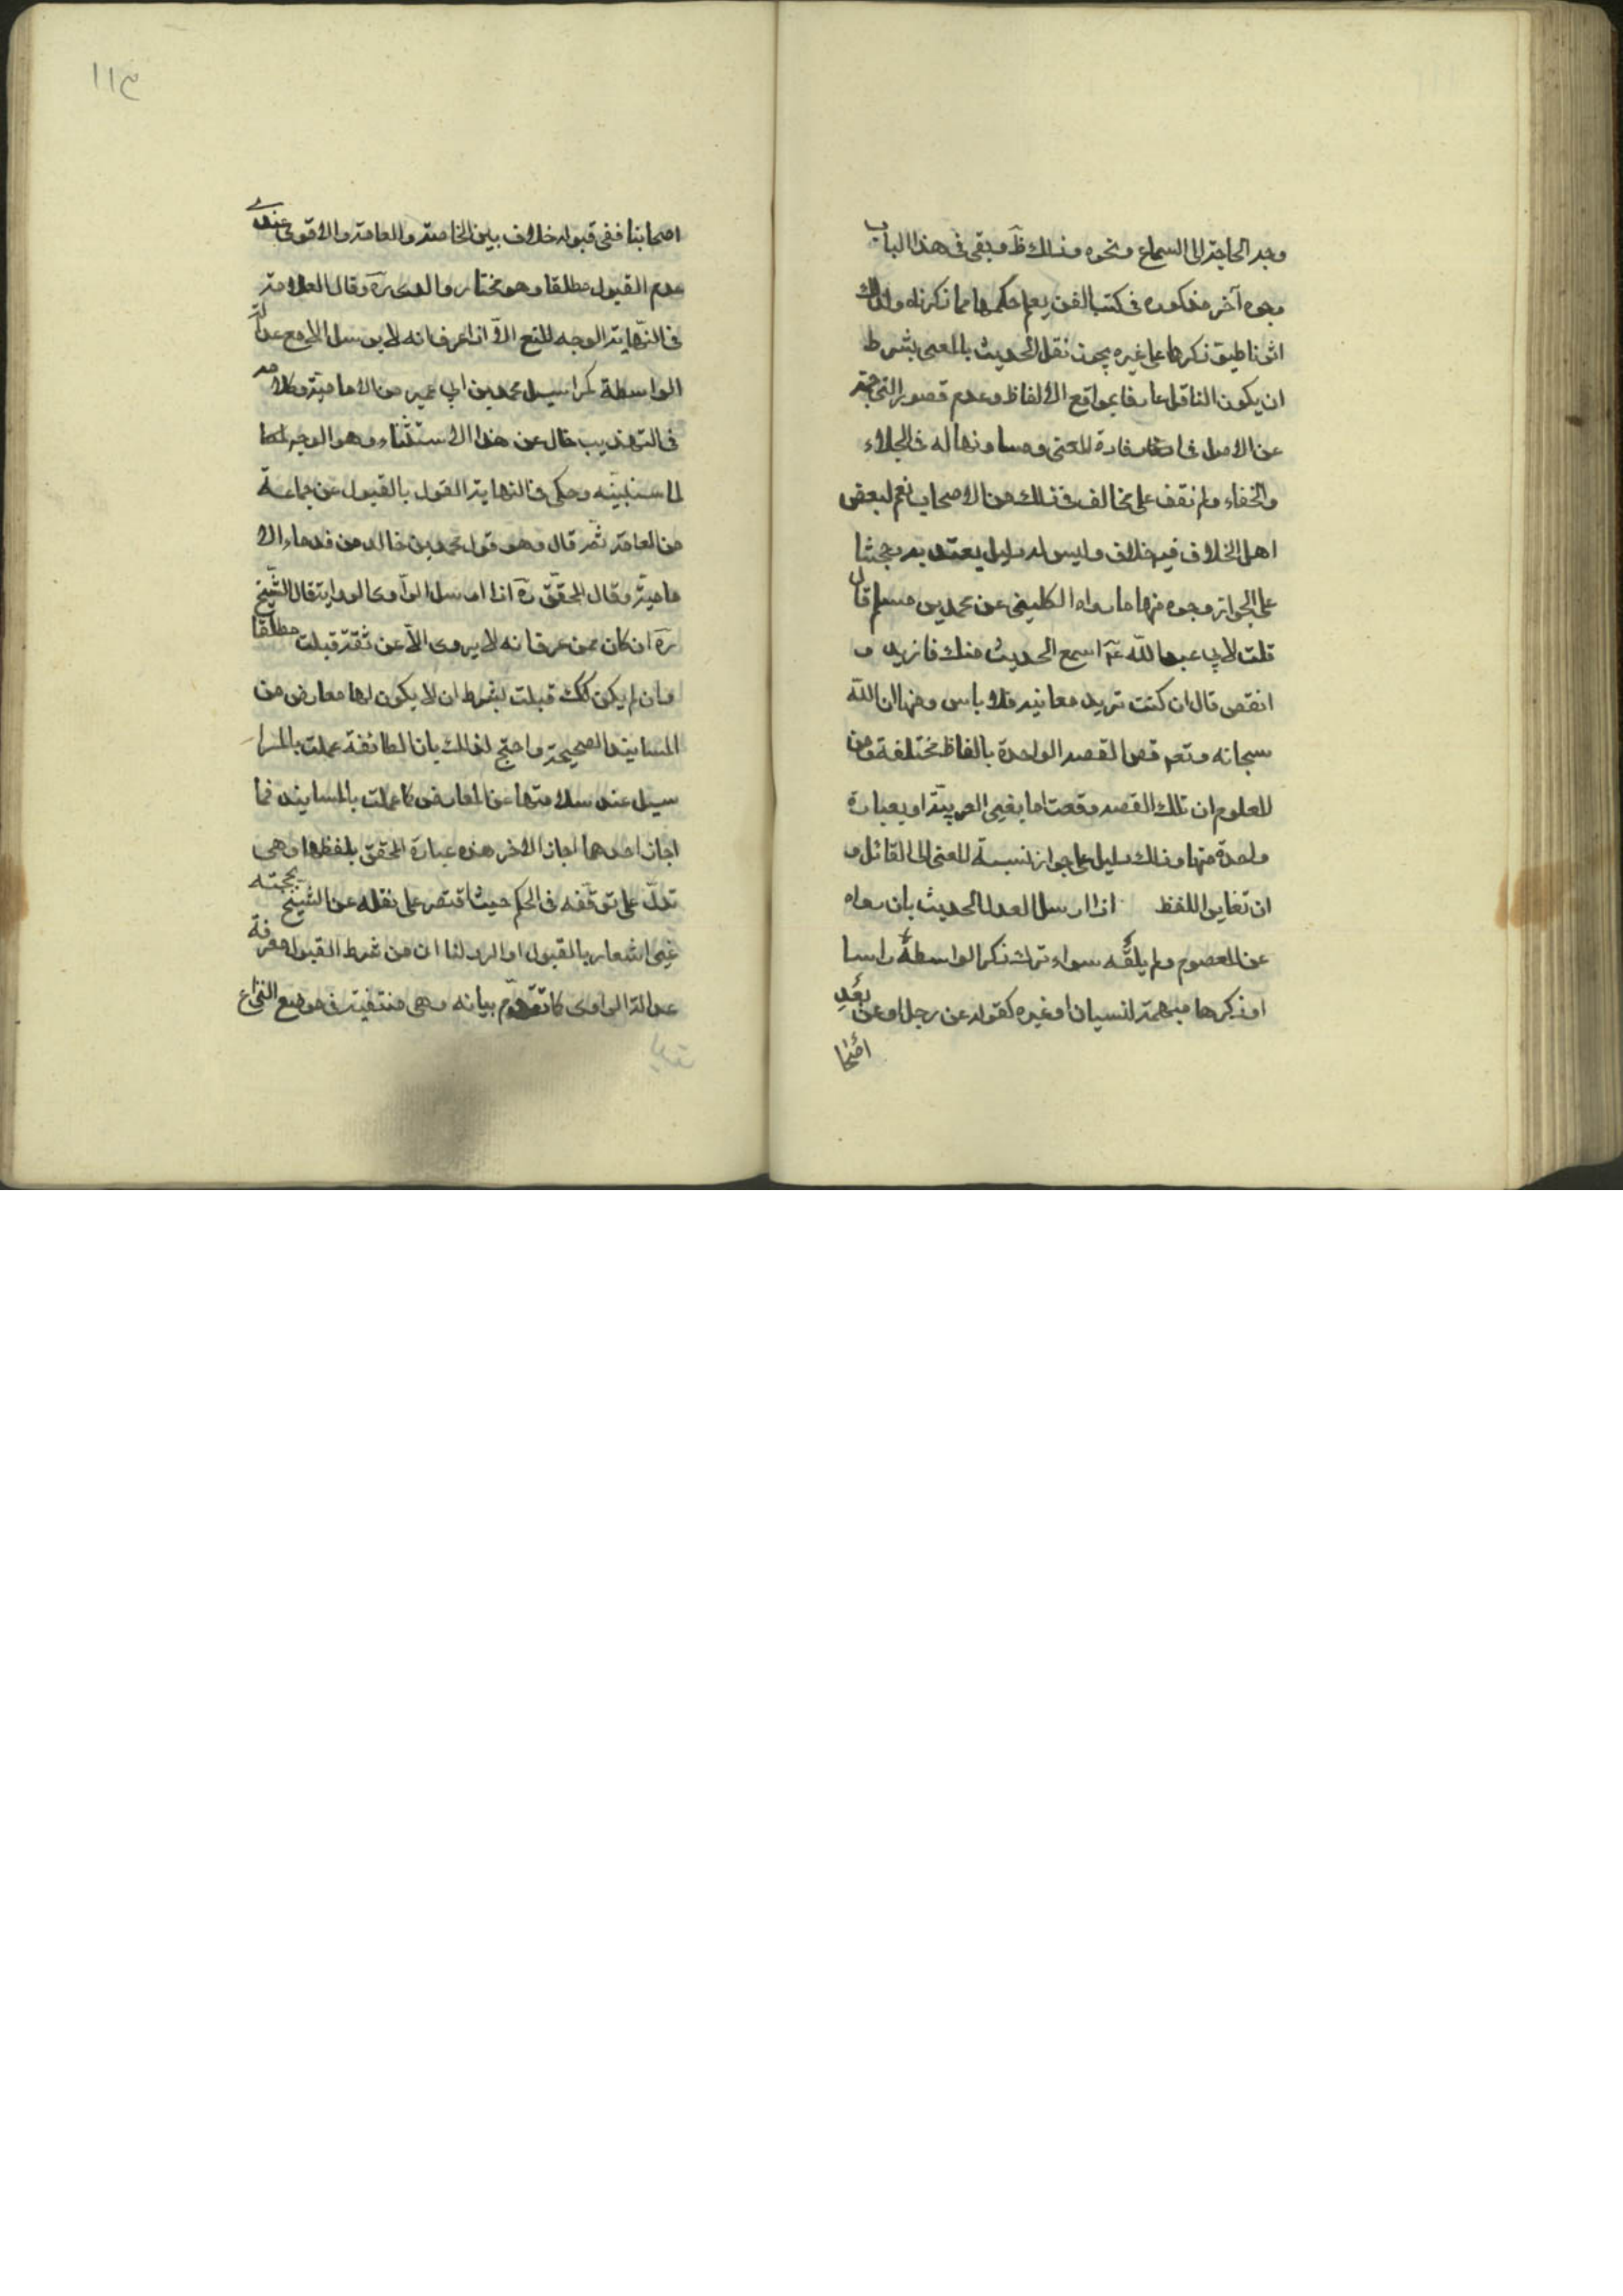 وجه الحاجة الى السماع ونحوه وذلك ظ وبقى فى هذا الباب
وجوه آخر مذكوره فى كتب الفن يعلم حكمها مما ذكرناه ولذلك
اثرنا طىّ ذكرها على غيره يجوز نقل الحديث بالمعنى بشرط
ان يكون الناقل عارفا بمواقع الالفاظ وعدم قصور الترجمة
عن الاصل فى افادة المعنى ومساوتها له فى الجلاء
والخفاء ولم نقف على مخالف فى ذلك من الاصحاب نعم لبعض
اهل الخلاف فيه خلاف وليس له دليل يعتد به حجتنا
على الجواز وجوه منها ما رواه الكلينى عن محمد بن مسلم قال
قلت لابى عبد الله عم اسمع الحديث منك فازيد و
انقص قال ان كنت تريد معانيه فلا باس ومنها ان الله
سبحانه وتعم قص القصه الواحدة بالفاظ مختلفة ومن
المعلوم ان تلك القصه وقعت اما بغير العربيّة او بعبارة
واحدة منها وذلك دليل على جواز نسبة المعنى الى القائل و
ان تغاير اللفظ اذا ارسل العدل الحديث بان رواه
عن المعصوم ولم يلقه سواء ترك ذكر الواسطة راسا
او ذكرها مبهمة لنسيان او غيره كقوله عن رجل او عن بعض
اصحا
١١٣
اصحابنا ففى قبوله خلاف بين الخاصة والعامة والاقوى عندى
عدم القبول مطلقا وهو مختار والدى ره وقال العلامة
فى النّهاية الوجه المنع الّا اذا عرف انه لا يرسل الا مع عدالة
الواسطة كمراسيل محمد بن ابى عمير من الامامية وكلامه
فى التهذيب خال عن هذا الاستثناء وهو الوجه
لما سنبينه وحكى فى النهاية القول بالقبول عن جماعة
من العامة ثم قال وهو قول محمد بن خالد من قدماء الا
مامية وقال المحقق ره اذا ارسل الراوى الرواية قال الشّيخ
ره ان كان ممن عرف انه لا يروى الّا عن ثقة قبلت مطلقا
وان لم يكن كك قبلت بشرط ان لا يكون لها معارض من
المسانيد الصحيحة واحتج لذلك بان الطائفة عملت بالمرا
سيل عند سلامتها عن المعارض كما عملت بالمسانيد فما
اجاز احدهما اجاز الاخر هذه عبارة المحقق بلفظها وهى
تدلّ على توقفه فى الحكم حيث اقتصر على نقله عن الشّيخ بحجته
غير اشعار بالقبول او الرد لنا ان من شرط القبول معرفة
عدالة الراوى كما تقدّم بيانه وهى منتفية فى موضع النزاع